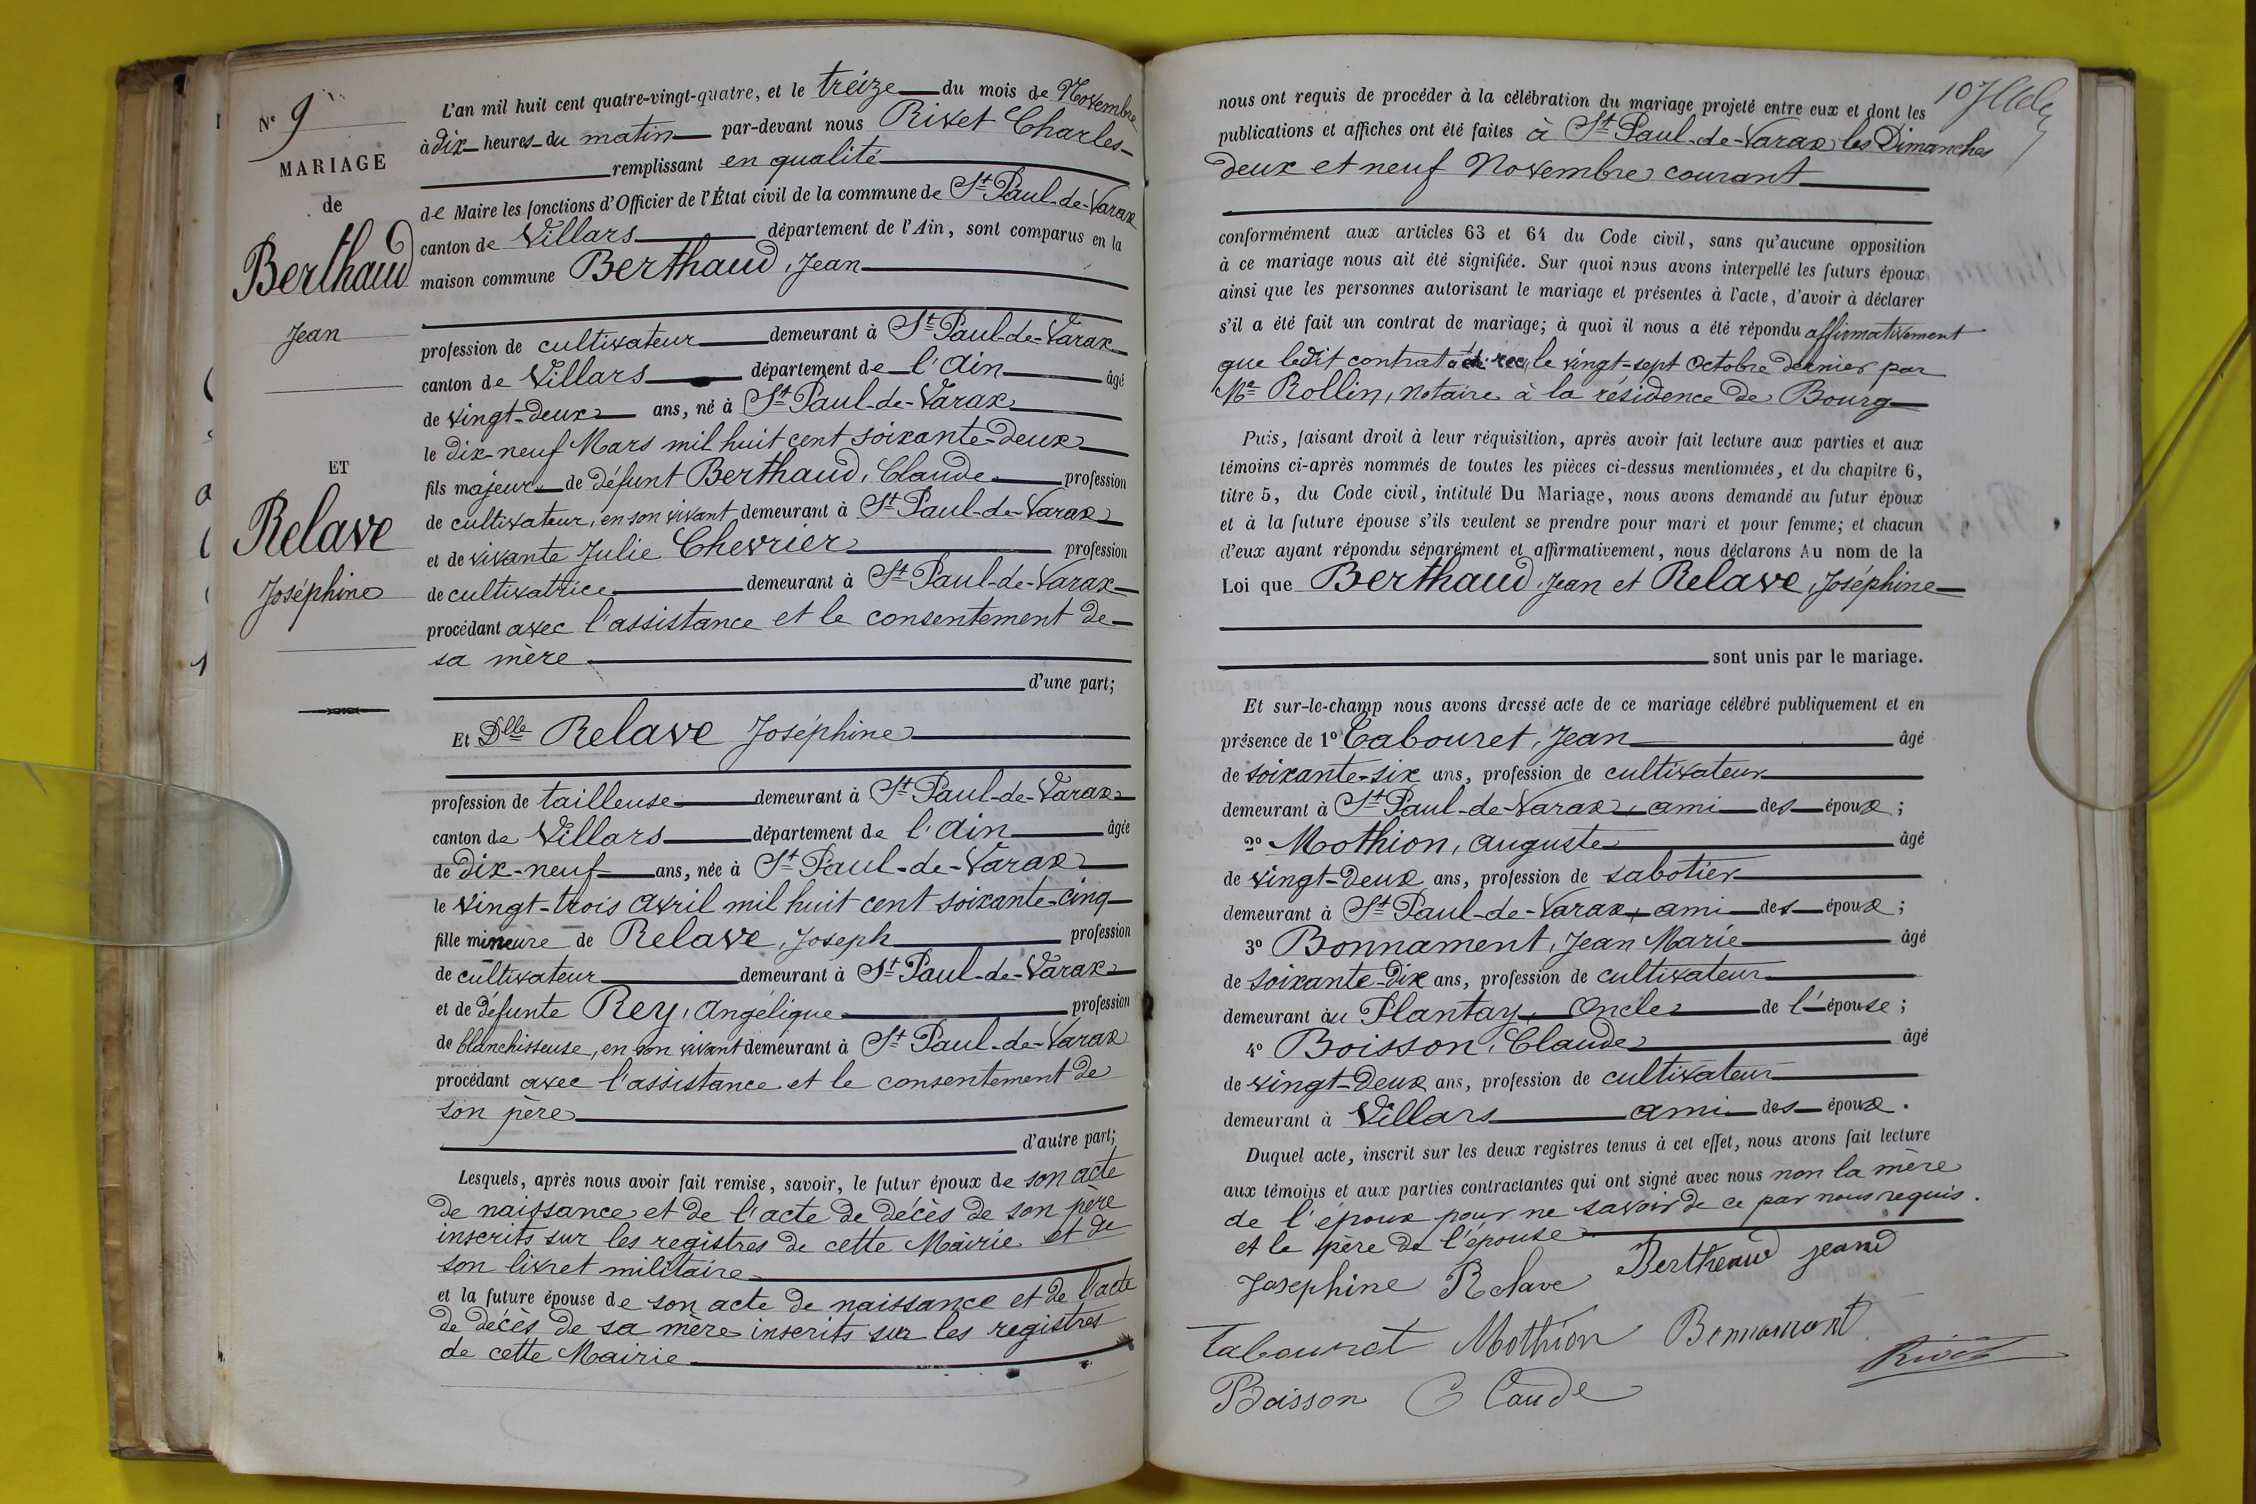 N° 9
MARIAGE
de
Berthaud
Jean
ET
Relave
Joséphine
L'an mil huit cent quatre-vingt-quatre, et le treize du mois de Novembre
à dix heures du matin par-devant nous Rivet Charles
remplissant en qualité
de Maire les fonctions d'Officier de l'État civil de la commune de St Paul-de-Varax
canton de Villars département de l'Ain, sont comparus en la
maison commune Berthaud, Jean
profession de cultivateur demeurant à St Paul-de-Varax
canton de Villars département de l'Ain âgé
de vingt-deux ans, né à St Paul-de-Varax
le dix-neuf Mars mil huit cent soixante-deux
fils majeur de défunt Berthaud, Claude profession
de cultivateur, en son vivant demeurant à St Paul-de-Varax
et de vivante Julie Chevrier profession
de cultivatrice demeurant à St Paul-de-Varax
procédant avec l'assistance et le consentement de
sa mère
d'une part;
Et Dlle Relave Joséphine
profession de tailleuse demeurant à St Paul-de-Varax
canton de Villars département de l'Ain âgée
de dix-neuf ans, née à St Paul-de-Varax
le vingt-trois avril mil huit cent soixante-cinq
fille mineure de Relave, Joseph profession
de cultivateur demeurant à St Paul-de-Varax
et de défunte Rey, Angélique profession
de blanchisseuse, en son vivant demeurant à St Paul-de-Varax
procédant avec l'assistance et le consentement de
son père
d'autre part;
Lesquels, après nous avoir fait remise, savoir, le futur époux de son acte
de naissance et de l'acte de décès de son père
inscrits sur les registres de cette Mairie et de
son livret militaire
et la future épouse de son acte de naissance et de l'acte
de décès de sa mère inscrits sur les registres
de cette Mairie
nous ont requis de procéder à la célébration du mariage projeté entre eux et dont les
publications et affiches ont été faites à St Paul-de-Varax les Dimanches
deux et neuf Novembre courant
conformément aux articles 63 et 64 du Code civil, sans qu'aucune opposition
à ce mariage nous ait été signifiée. Sur quoi nous avons interpellé les futurs époux,
ainsi que les personnes autorisant le mariage et présentes à l'acte, d'avoir à déclarer
s'il a été fait un contrat de mariage; à quoi il nous a été répondu affirmativement
que ledit contrat a été reçu le vingt-sept octobre dernier par
Me Rollin, notaire à la résidence de Bourg
Puis, faisant droit à leur réquisition, après avoir fait lecture aux parties et aux
témoins ci-après nommés de toutes les pièces ci-dessus mentionnées, et du chapitre 6,
titre 5, du Code civil, intitulé Du Mariage, nous avons demandé au futur époux
et à la future épouse s'ils veulent se prendre pour mari et pour femme; et chacun
d'eux ayant répondu séparément et affirmativement, nous déclarons Au nom de la
Loi que Berthaud, Jean et Relave, Joséphine
sont unis par le mariage.
Et sur-le-champ nous avons dressé acte de ce mariage célébré publiquement et en
présence de 1° Tabouret, Jean âgé
de soixante-six ans, profession de cultivateur
demeurant à St Paul-de-Varax, ami des époux;
2° Mothion, auguste âgé
de vingt-deux ans, profession de sabotier
demeurant à St Paul-de-Varax, ami des époux;
3° Bonnament, Jean Marie âgé
de soixante-dix ans, profession de cultivateur
demeurant au Plantay, oncle de l'épouse;
4° Boisson, Claude âgé
de vingt-deux ans, profession de cultivateur
demeurant à Villars ami des époux.
Duquel acte, inscrit sur les deux registres tenus à cet effet, nous avons fait lecture
aux témoins et aux parties contractantes qui ont signé avec nous non la mère
de l'époux pour ne savoir de ce par nous requis.
et le père de l'épouse
Josephine Relave Bertheaud jean
Tabouret Mothion Bonnamont
Rivet
Boisson Claude